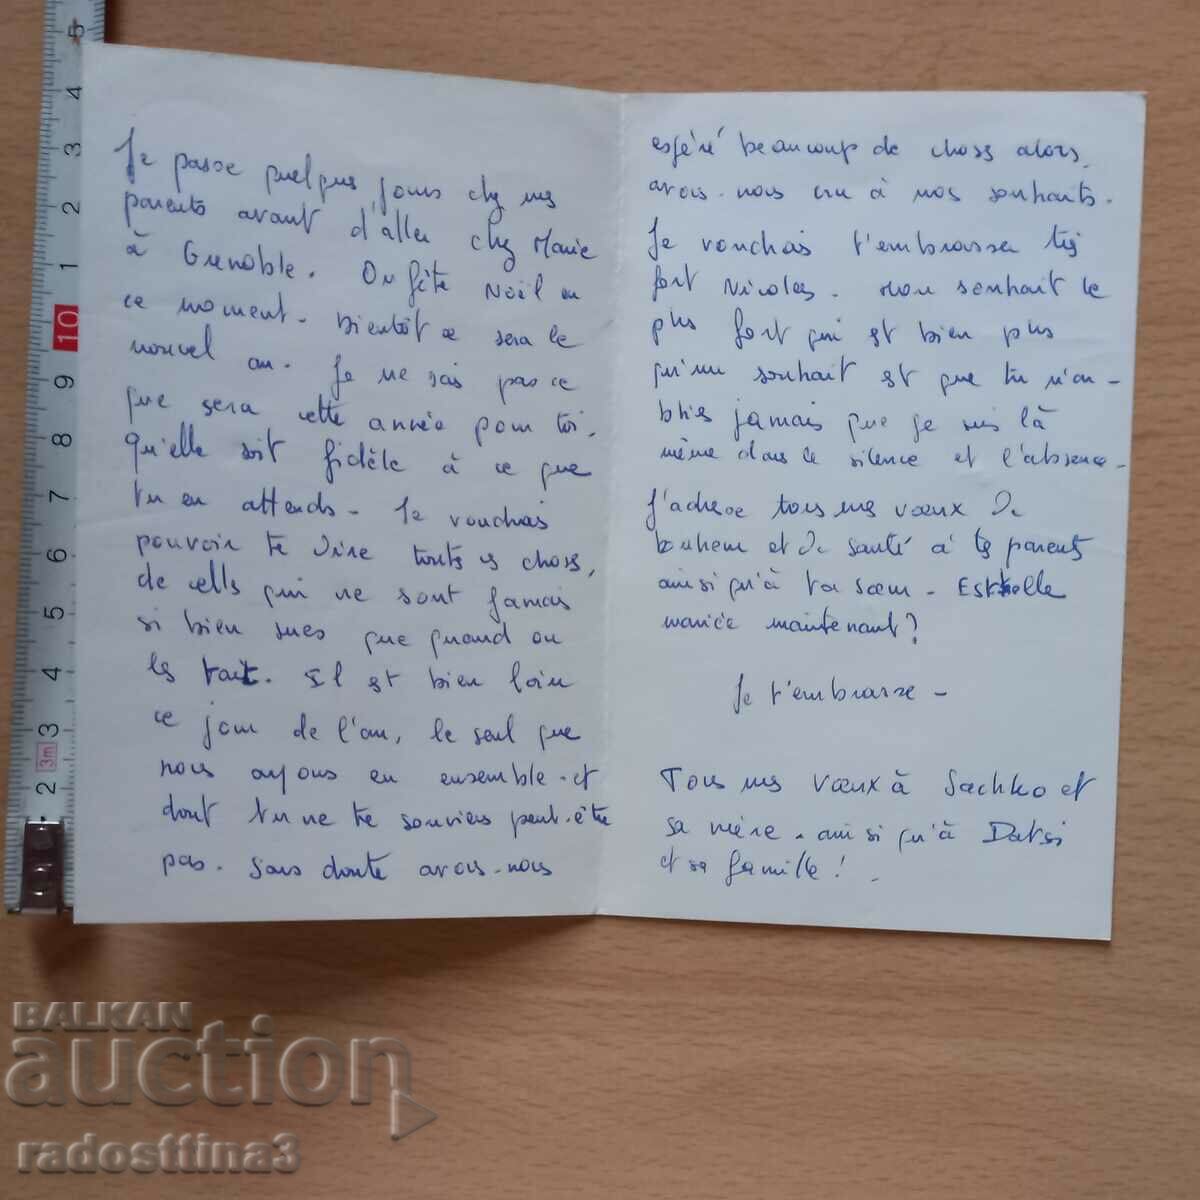 Je passe quelques jours chez mes
parents avant d'aller chez Marie
à Grenoble. On fête Noël en
ce moment. Bientôt ce sera le
nouvel an. Je ne sais pas ce
que sera cette année pour toi.
Qu'elle soit fidèle à ce que
tu en attends - Je voudrais
pouvoir te dire toutes ces choses,
de celles qui ne sont jamais
si bien sues que quand on
les tait. Il est bien loin
ce jour de l'an, le seul que
nous ayons eu ensemble - et
dont tu ne te souviens peut-être
pas. Sans doute avois-nous
espéré beaucoup de choses alors,
avois-nous cru à nos souhaits.
Je voudrais t'embrasser très
fort Nicolas. Mon souhait le
plus fort qui est bien plus
qu'un souhait est que tu n'ou-
blies jamais que je suis là
même dans le silence et l'absence -
J'adresse tous mes vœux de
bonheur et de santé à tes parents
ainsi qu'à ta sœur - Estelle
mariée maintenant?
Je t'embrasse -
Tous mes vœux à Sachko et
sa mère. ainsi qu'à Datsi
et sa famille!
5
4
3
2
1
10
9
8
7
6
5
4
3
3m
2
BALKAN
auction
radosttina3